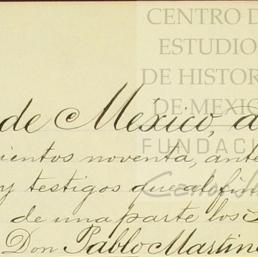 CENTRO D
ESTUDIO
DE HISTOR
DE MEXIC
FUNDAC
de Mexico, a
cientos noventa, ante
y testigos que al fin
de una parte los
Don Pablo Martin